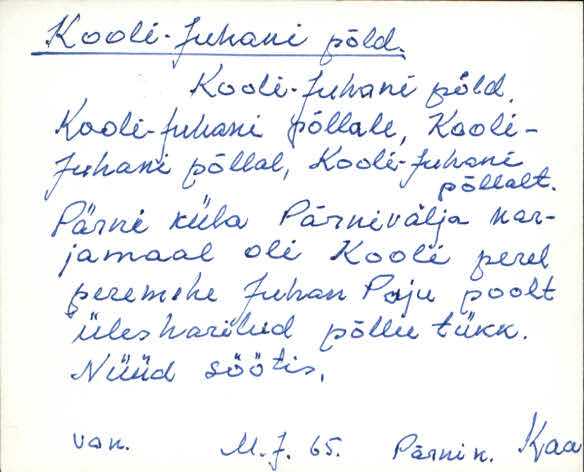 Kooli-Juhani põld.
Kooli-Juhani põld,
Kooli-Juhani põllale, Kooli-
Juhani põllal, Kooli-Juhani
põllalt.
Pärni küla Pärnivälja kar-
jamaal oli Kooli perel
peremehe Juhan Paju poolt
ülesharitud põllu tükk.
Nüüd söötis.
van. M.J. 65. Pärni k. Kaa